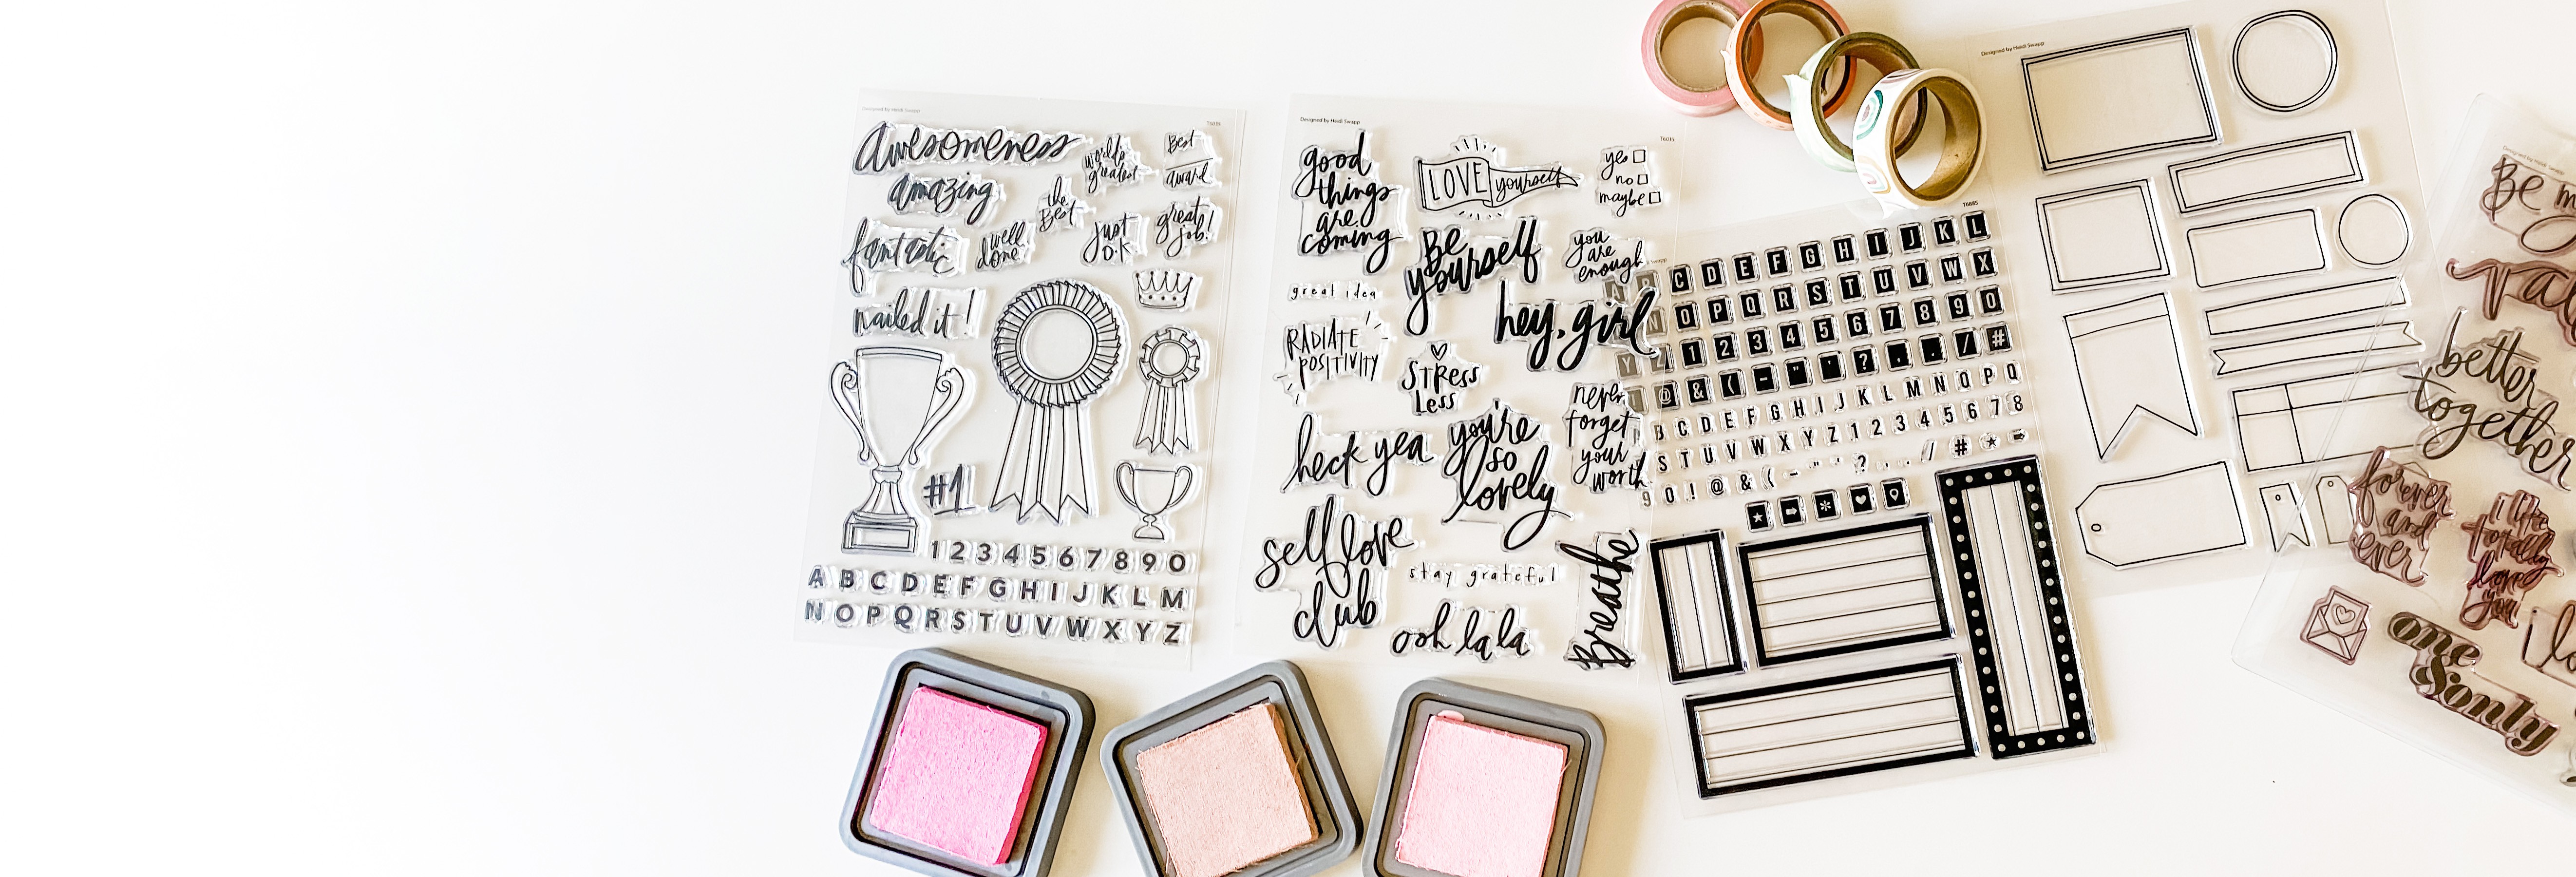 Designed by Heidi Swapp
T6035
awesomeness
world's
greatest
Best
award
amazing
the
Best
fantastic
well
done
just
O.K
great
job!
nailed it!
#1
1234567890
ABCDEFGHIJKLM
NOPQRSTUVWXYZ
Designed by Heidi Swapp
T6035
good
things
are
coming
LOVE yourself
yes
no
maybe
Be
yourself
you
are
enough
great idea
hey, girl
RADIATE
POSITIVITY
STRESS
LESS
never
forget
your
worth
heck yea
you're
so
lovely
self love
club
stay grateful
ooh la la
Breathe
T6035
A B C D E F G H I J K L
N O P Q R S T U V W X
Y Z 1 2 3 4 5 6 7 8 9 0
! @ & ( - " ' ? , . / #
B C D E F G H I J K L M N O P Q
S T U V W X Y Z 1 2 3 4 5 6 7 8
9 0 ! @ & ( - " ' ? , . / #
Designed by Heidi Swapp
Be m
better
together
forever
and
ever
I like
totally
love
you
one
&only